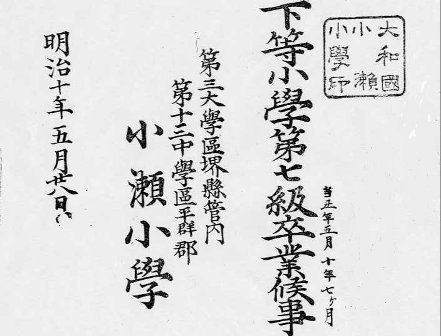 大和國
小瀬
小學印
當正年五月十年七ヶ月
下等小學第七級卒業候事
第三大學區堺縣管内
第十三中學區平群郡
小瀬小學
明治十年五月廿八日